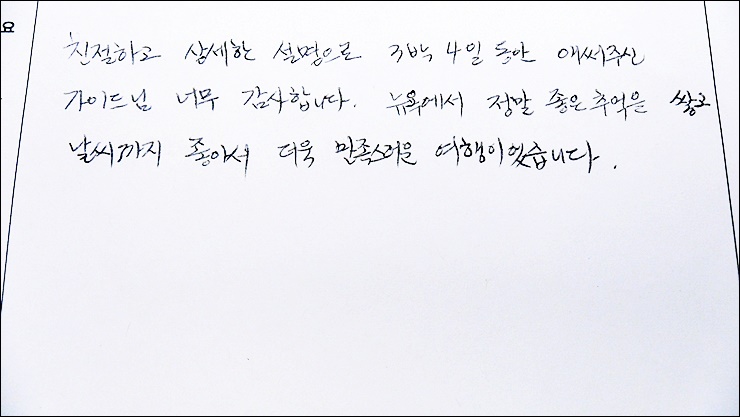 요
친절하고 상세한 설명으로 3박 4일 동안 애써주신
가이드님 너무 감사합니다. 뉴욕에서 정말 좋은 추억은 쌓고
날씨까지 좋아서 더욱 만족스러운 여행이었습니다.